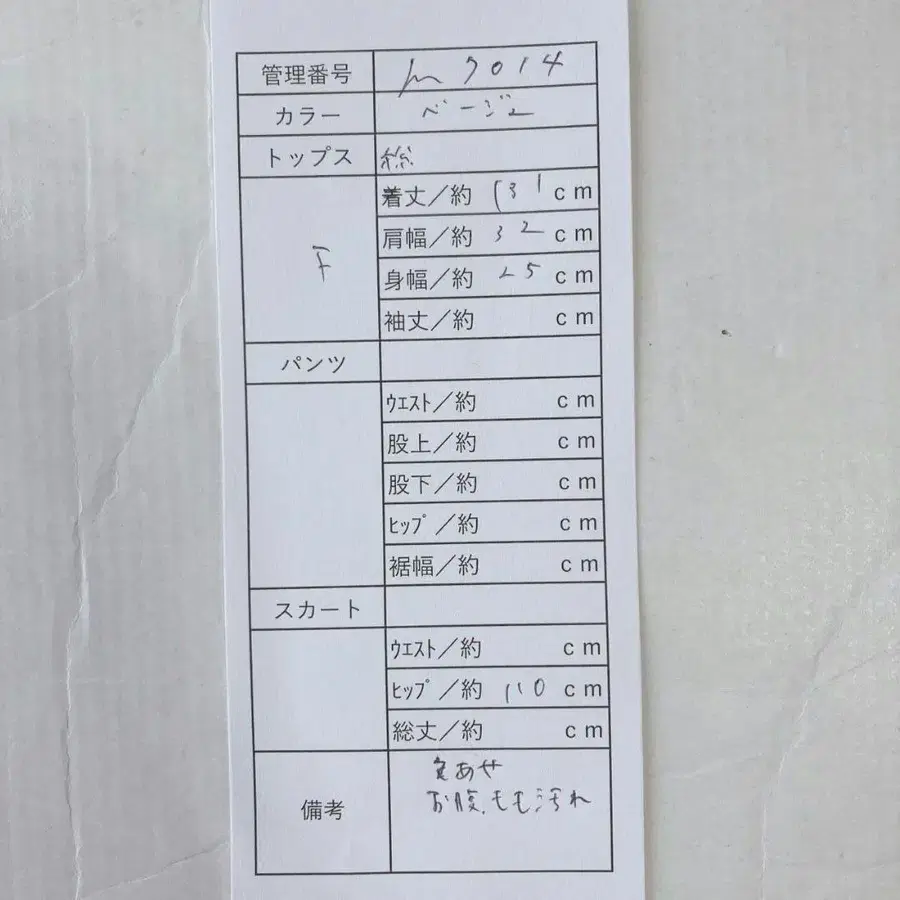 管理番号 m7014
カラー ベージュ
トップス 総
F
着丈／約 131 cm
肩幅／約 32 cm
身幅／約 25 cm
袖丈／約 cm
パンツ
ｳｴｽﾄ／約 cm
股上／約 cm
股下／約 cm
ﾋｯﾌﾟ／約 cm
裾幅／約 cm
スカート
ｳｴｽﾄ／約 cm
ﾋｯﾌﾟ／約 110 cm
総丈／約 cm
備考
色あせ
お腹、もも汚れ